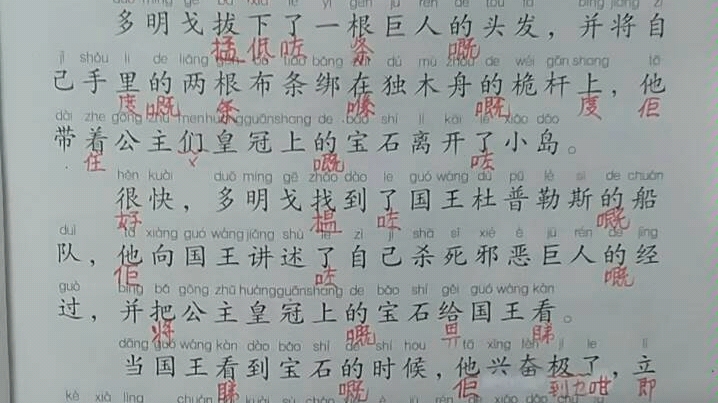 多明戈拔下了一根巨人的头发，并将自
掹低咗 条 嘅
jǐ shǒu lǐ de liǎng gēn bù tiáo bǎng zài dú mù zhōu de wéi gān shàng tā
己手里的两根布条绑在独木舟的桅杆上，他
度嘅 条 喺 嘅 度 佢
dài zhe gōng zhǔ men huáng guān shang de bǎo shí lí kāi le xiǎo dǎo
带着公主们皇冠上的宝石离开了小岛。
住 × 嘅 咗
hěn kuài duō míng gē zhǎo dào le guó wáng dù pǔ lè sī de chuán
很快，多明戈找到了国王杜普勒斯的船
好 揾 咗 嘅
duì tā xiàng guó wáng jiǎng shù le zì jǐ shā sǐ xié è jù rén de jīng
队，他向国王讲述了自己杀死邪恶巨人的经
佢 咗 嘅
guò bìng bǎ gōng zhǔ huáng guān shang de bǎo shí gěi guó wáng kàn
过，并把公主皇冠上的宝石给国王看。
将 嘅 畀 睇
dāng guó wáng kàn dào bǎo shí de shí hou tā xīng fèn jí le lì
当国王看到宝石的时候，他兴奋极了，立
睇 嘅 佢 即